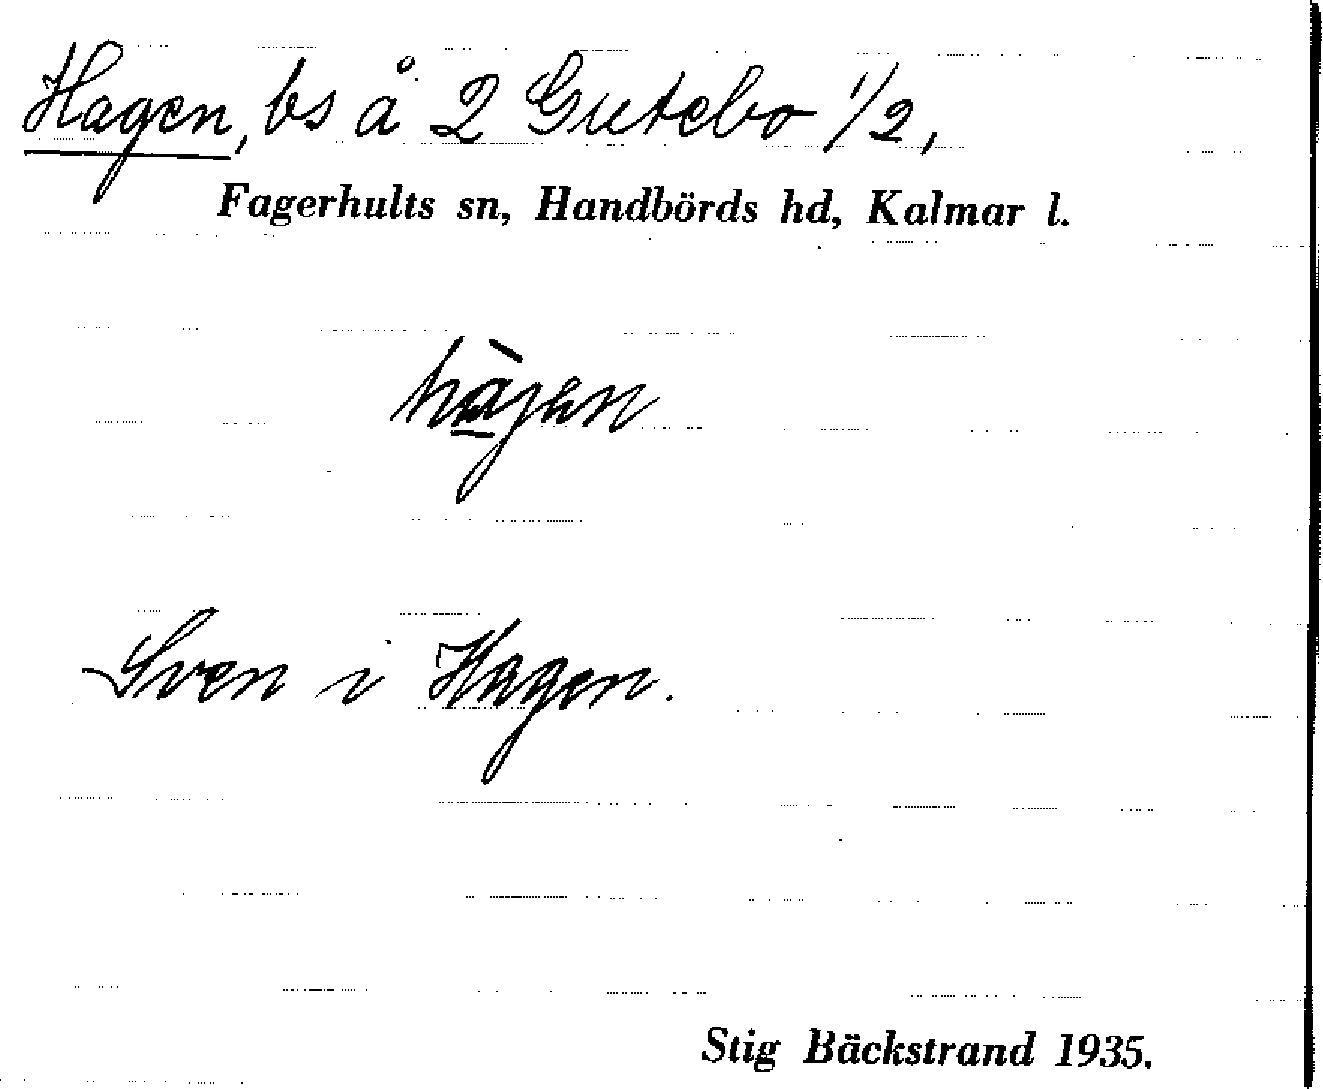 Hagen, bs å 2 Gutebo 1/2,
Fagerhults sn, Handbörds hd, Kalmar l.
hàgen
Sven i Hagen.
Stig Bäckstrand 1935.